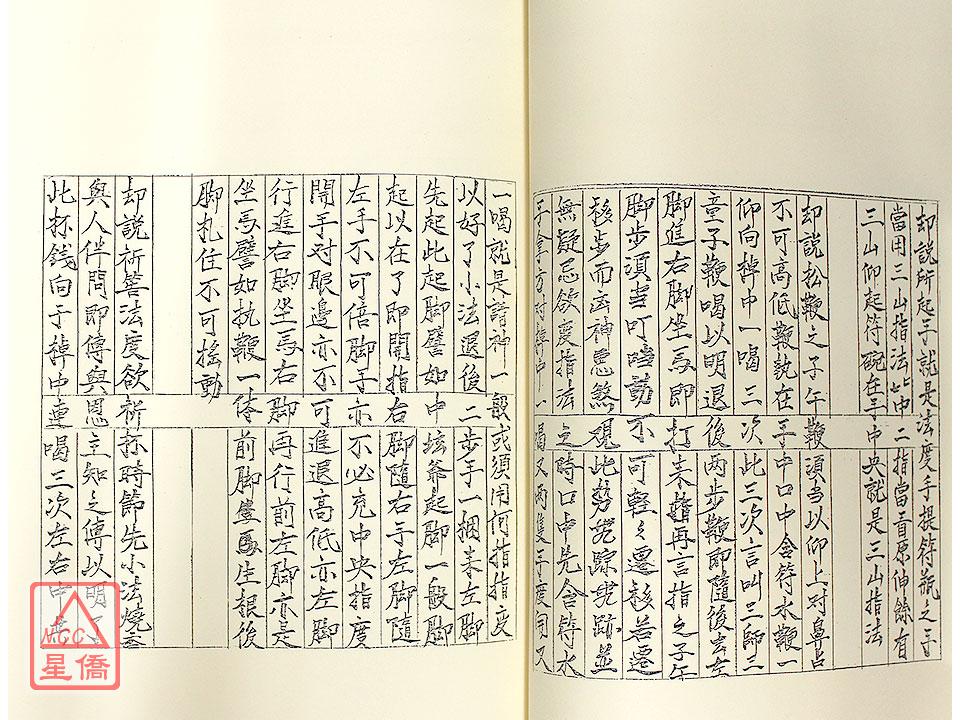 却說所起手就是法度手提符瓶之手
當用三山指法此中二指當盲原伸餘有
三山仰起符碗在手中央就是三山指法
却說松鞭之子午鞭須當以仰上对鼻占
不可高低鞭執在手中口中含符水鞭一
仰向掉中一喝三次此三次言叫三師三
童子鞭喝以明退後兩步鞭即隨後去左
脚進右脚坐馬即打来再言指之子午
脚步須当叮噹動不可輕々遷移若遷
移步而凶神惡煞观此勢踪跡並
無疑忌欲度指法之時口中先含符水
手拿方对掉中一喝又两隻手度用又
一喝就是請神一般或須用何指指度
以好了小法退後二步手一捆来左脚
先起此起脚譬如中坛爺起脚一般脚
起以在了即開指右脚隨右手左脚隨
左手不可倍脚手亦不必充中央指度
開手对眼邊亦不可進退高低亦左脚
行進右脚坐馬右脚再行前左脚亦是
坐馬譬如执鞭一体前脚馬生根後
脚扎住不可搖動
却說祈筶法度欲祈杯時節先小法燒
與人伴問即傳與恩主知之傳以明了
此杯錢向于掉中連喝三次左右中
NCC
星僑